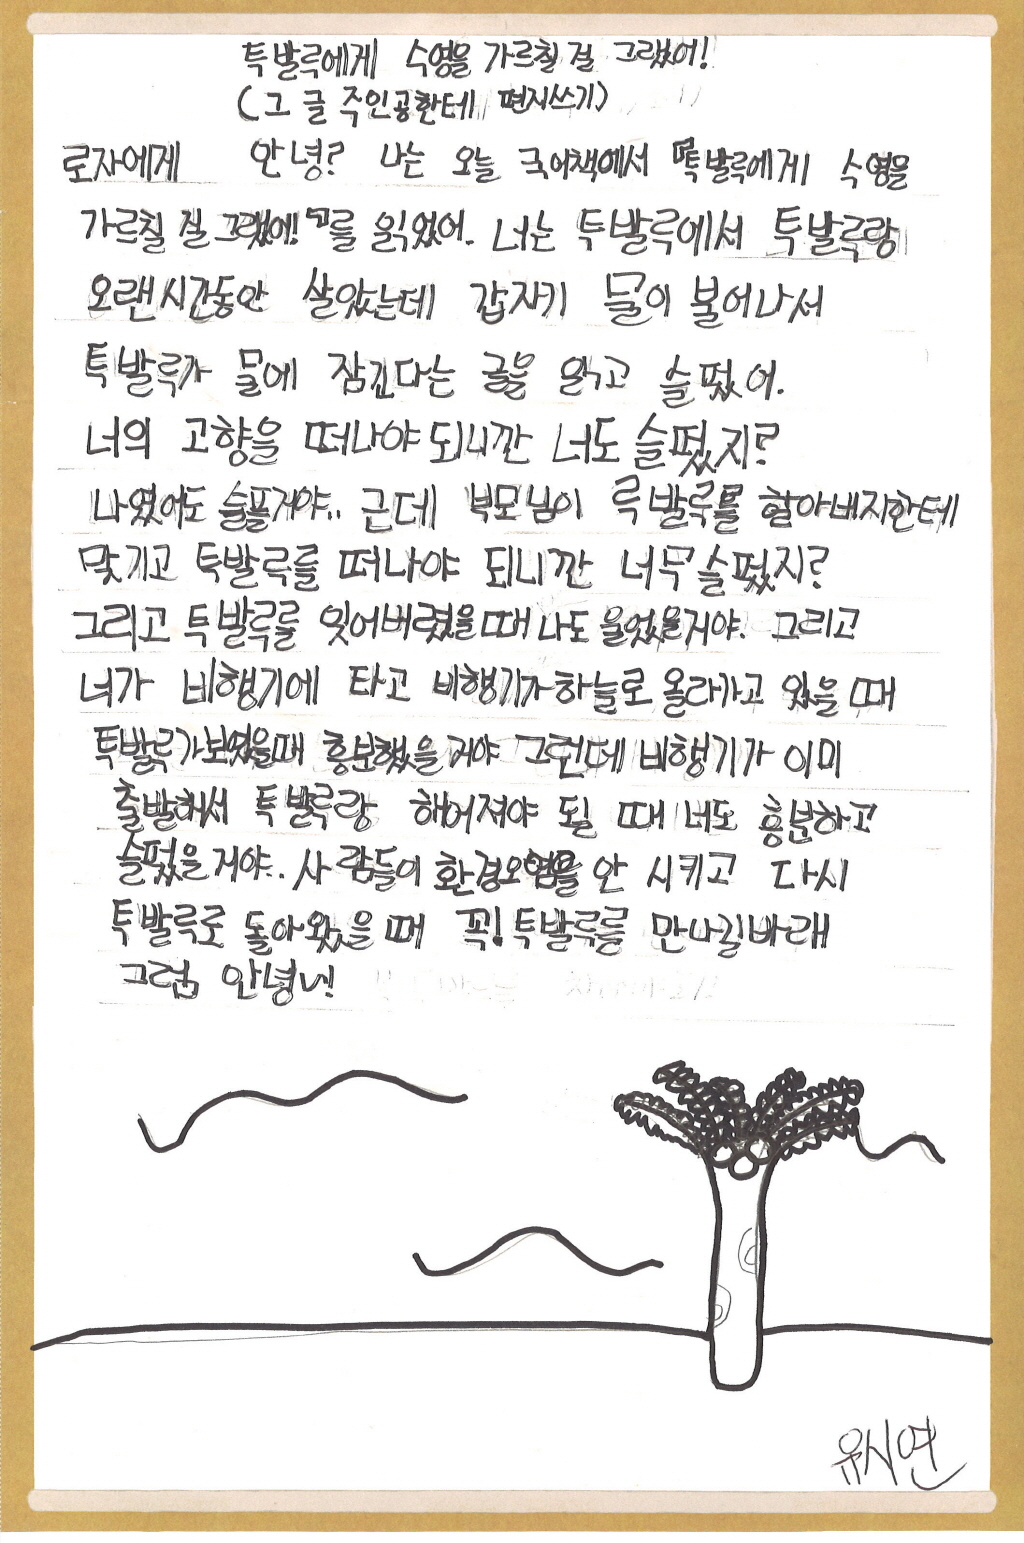 투발루에게 수영을 가르칠 걸 그랬어!
(그 글 주인공한테 편지쓰기)
로자에게 안녕? 나는 오늘 국어책에서 『투발루에게 수영을
가르칠 걸 그랬어!』를 읽었어. 너는 투발루에서 투발루랑
오랜시간동안 살았는데 갑자기 물이 불어나서
투발루가 물에 잠긴다는 글을 읽고 슬펐어.
너의 고향을 떠나야 되니깐 너도 슬펐지?
나였어도 슬플거야.. 근데 부모님이 투발루를 할아버지한테
맞기고 투발루를 떠나야 되니깐 너무 슬펐지?
그리고 투발루를 잊어버렸을때 나도 울었을거야. 그리고
너가 비행기에 타고 비행기가 하늘로 올라가고 있을 때
투발루가 보였을때 흥분했을 거야 그런데 비행기가 이미
출발해서 투발루랑 헤어져야 될 때 너도 흥분하고
슬펐을 거야. 사람들이 환경오염을 안 시키고 다시
투발루로 돌아왔을 때 꼭! 투발루를 만나길바래
그럼 안녕~!
유시연